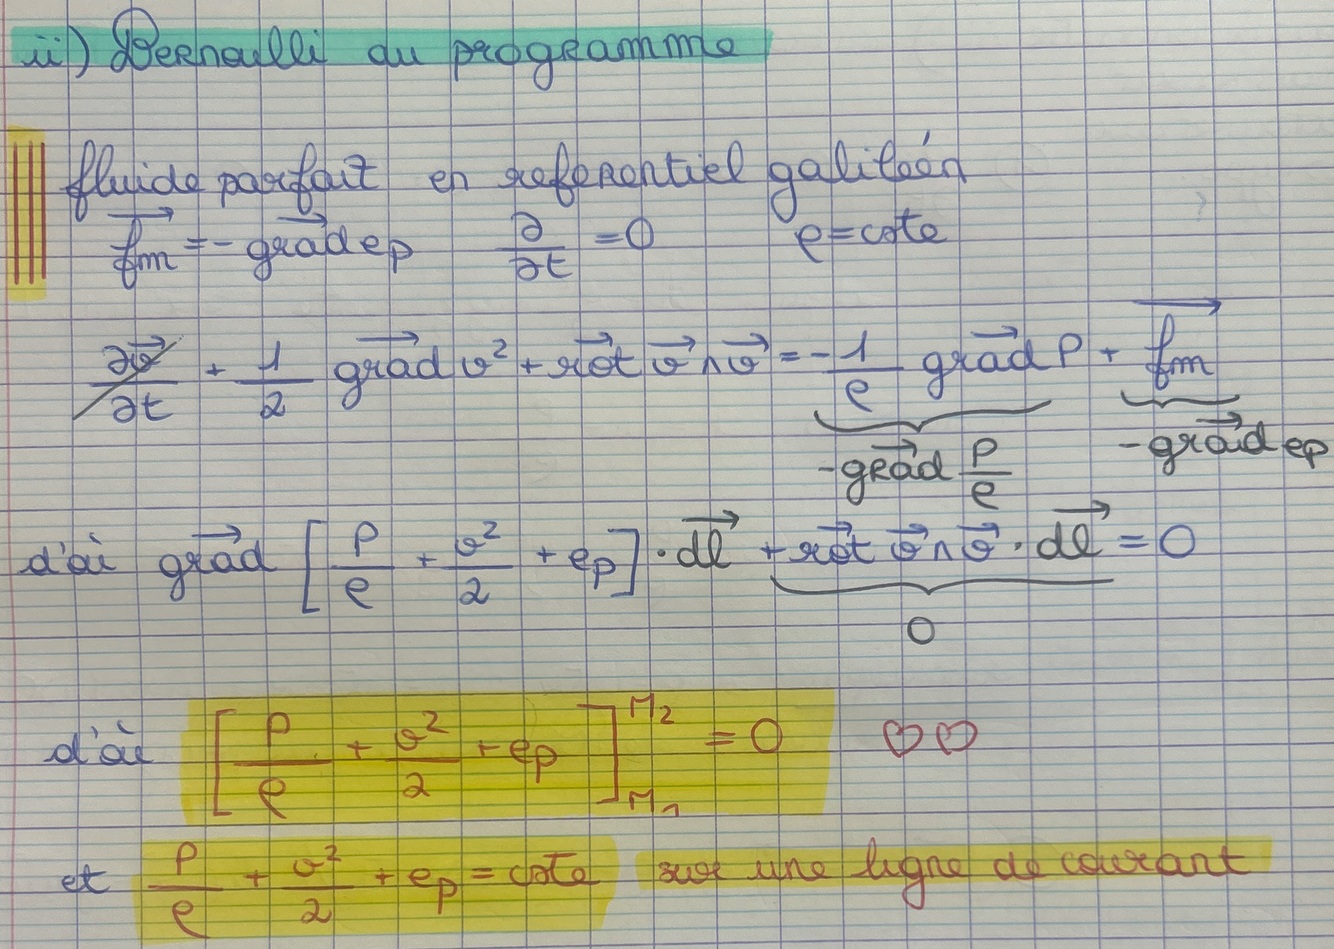 ii) Bernoulli du programme
fluide parfait en referentiel galiléen
$\overrightarrow{f_m} = -\overrightarrow{grad}\, e_p$ $\frac{\partial}{\partial t} = 0$ $\rho = cste$
$\frac{\partial \vec{v}}{\partial t} + \frac{1}{2} \overrightarrow{grad}\, v^2 + \overrightarrow{rot}\, \vec{v} \wedge \vec{v} = -\frac{1}{\rho} \overrightarrow{grad}\, P + \overrightarrow{f_m}$
$-\overrightarrow{grad}\, \frac{P}{\rho}$ $-\overrightarrow{grad}\, e_p$
d'où $\overrightarrow{grad} \left[ \frac{P}{\rho} + \frac{v^2}{2} + e_p \right] \cdot \overrightarrow{dl} + \overrightarrow{rot}\, \vec{v} \wedge \vec{v} \cdot \overrightarrow{dl} = 0$
0
d'où $\left[ \frac{P}{\rho} + \frac{v^2}{2} + e_p \right]_{M_1}^{M_2} = 0$ ♡♡
et $\frac{P}{\rho} + \frac{v^2}{2} + e_p = cste$ sur une ligne de courant